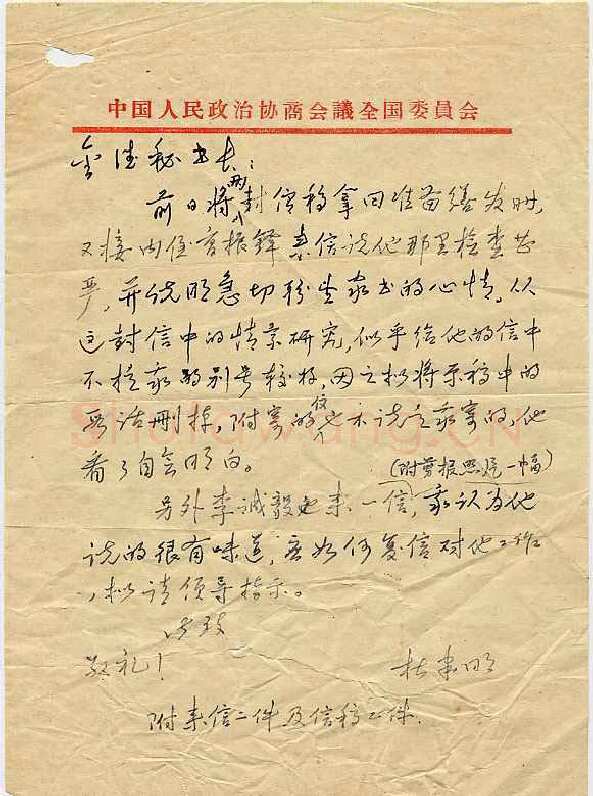 中国人民政治协商会議全国委員会
秘书长：
前日将两封信稿拿回准备缮发时，
又接内侄 振铎来信说他那里检查甚
严，并说明急切盼生家书的心情，从
这封信中的情景研究，似乎给他的信中
不提我的别号较好，因之拟将原稿中的
要话删掉，附寄的 也不说是我寄的，他
看了自会明白。
(附剪报照片一幅)
另外李诚毅也来一信，我认为他
说的很有味道，应如何复信对他工作
，拟请领导指示。
此致
敬礼！
杜聿明
附来信二件及信稿二件.